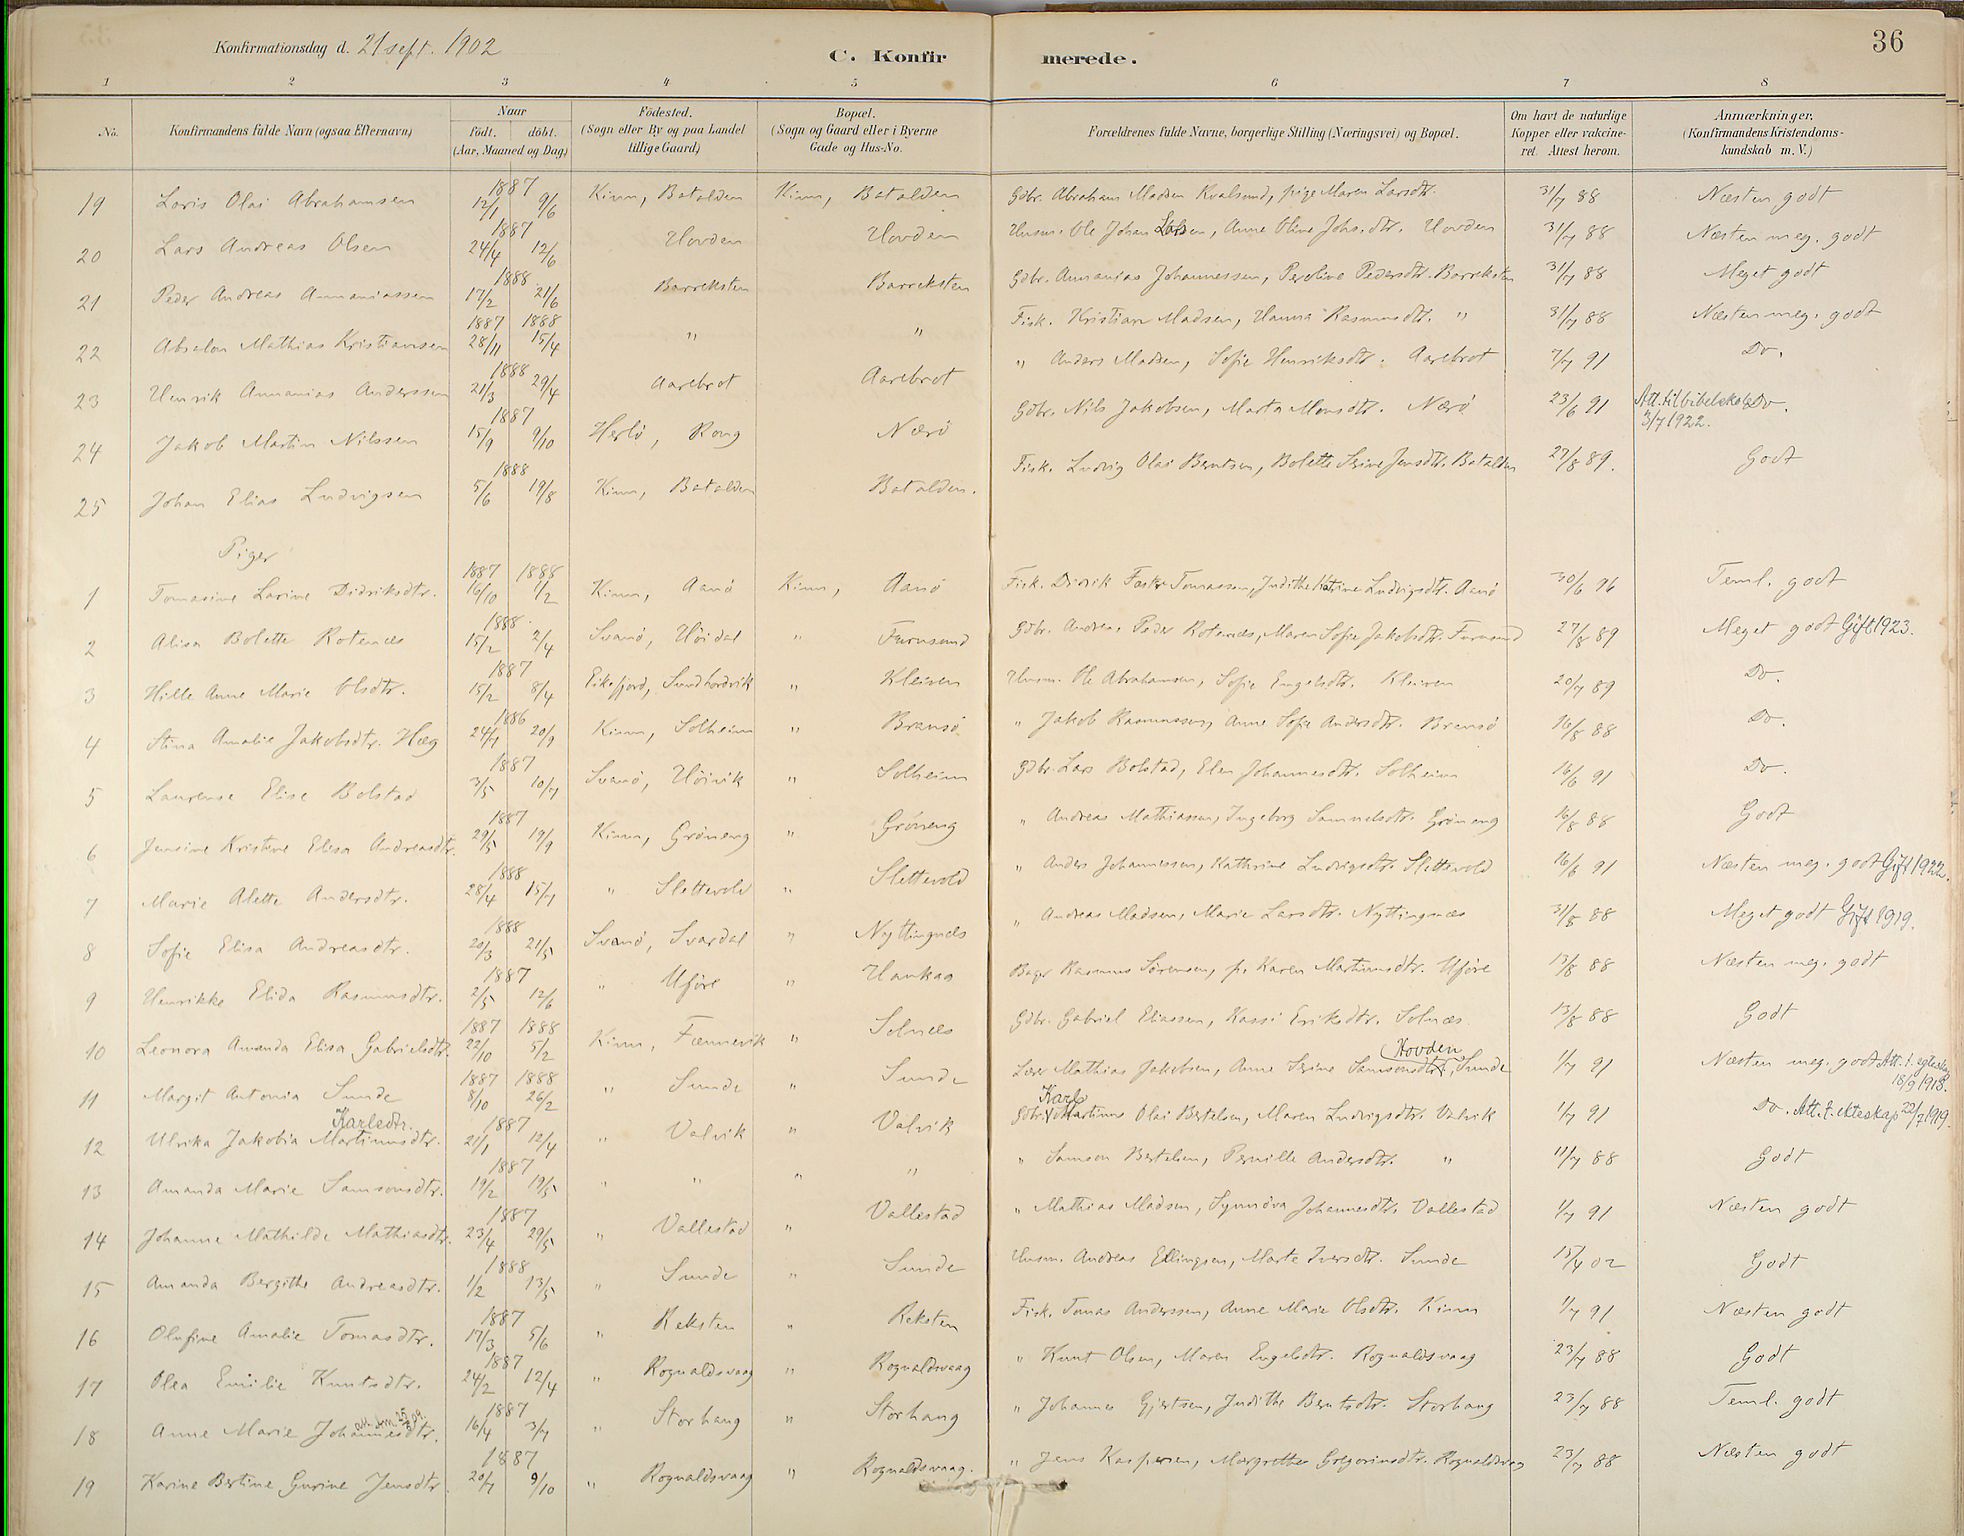 36
Konfirmationsdag d. 21 sept. 1902
C. Konfirmerede.
1 2 3 4 5 6 7 8
No. Konfirmandens fulde Navn (ogsaa Efternavn) Naar födt. döbt. (Aar, Maaned og Dag) Födested. (Sogn eller By og paa Landet tillige Gaard) Bopæl. (Sogn og Gaard eller i Byerne Gade og Hus-No. Forældrenes fulde Navne, borgerlige Stilling (Næringsvei) og Bopæl. Om havt de naturlige Kopper eller vakcineret. Attest herom. Anmærkninger. (Konfirmandens Kristendomskundskab m. V.)
19 Loris Olai Abrahamsen 1887 12/1 9/6 Kinn, Batalden Kinn, Batalden Gdbr. Abraham Madsen Kvalsund, pige Maren Larsdtr. 31/7 88 Næsten godt
20 Lars Andreas Olsen 1887 24/4 12/6 Hovden Hovden Husm. Ole Johan Larsen, Anne Oline Johs.dtr. Hovden 31/7 88 Næsten meg. godt
21 Peder Andreas Annaniassen 1888 17/2 21/6 Barreksten Barreksten Gdbr. Annanias Johannessen, Peroline Pedersdtr. Barreksten 31/7 88 Meget godt
22 Absalon Mathias Kristiansen 1887 28/11 1888 15/4 " " Fisk. Kristian Madsen, Hanna Rasmusdtr. " 31/7 88 Næsten meg. godt
23 Henrik Annanias Anderssen 1888 21/3 29/4 Aarebrot Aarebrot " Anders Madsen, Sofie Henriksdtr. Aarebrot 7/7 91 Do.
24 Jakob Martin Nilssen 1887 15/9 9/10 Herlö, Rong Nærö Gdbr. Nils Jakobsen, Marta Monsdtr. Nærö 23/6 91 Att. til bibelskole Do. 3/7 1922.
25 Johan Elias Ludvigsen 1888 5/6 19/8 Kinn, Batalden Batalden. Fisk. Ludvig Olai Berntsen, Bolette Serine Jensdtr. Batalden 27/8 89. Godt
Piger
1 Tomasine Larine Didriksdtr. 1887 16/10 1888 1/2 Kinn, Aanö Kinn, Aanö Fisk. Didrik Tomassen, Judithe Katrine Ludvigsdtr. Aanö 30/6 96 Teml. godt
2 Alisa Bolette Rotenæs 1888 15/2 2/4 Svanö, Höidal " Furusund Gdbr. Andreas Peder Rotenæs, Maren Sofie Jakobsdtr. Furusund 27/8 89 Meget godt Gift 1923.
3 Hille Anne Marie Olsdtr. 1887 15/2 8/4 Eikefjord, Sundhordvik " Kleiven Husm. Ole Abrahamsen, Sofie Engelsdtr. Kleiven 20/7 89 Do.
4 Stina Amalie Jakobsdtr. Hæg 1886 24/7 20/9 Kinn, Solheim " Bransö " Jakob Rasmussen, Anne Sofie Andersdtr. Bransö 16/8 88 Do.
5 Laurense Elise Bolstad 1887 3/5 10/7 Svanö, Höivik " Solheim Gdbr. Lars Bolstad, Elen Johannesdtr. Solheim 16/6 91 Do.
6 Jensine Kristine Elesa Andreasdtr. 1887 29/5 19/9 Kinn, Gröneng " Gröneng " Andreas Mathiassen, Ingeborg Samuelsdtr. Gröneng 16/8 88 Godt
7 Marie Alette Andersdtr. 1888 28/4 15/7 " Slettevold " Slettevold " Anders Johannessen, Kathrine Ludvigsdtr. Slettevold 16/6 91 Næsten meg. godt Gift 1922.
8 Sofie Elisa Andreasdtr. 1888 20/3 21/5 Svanö, Svardal " Nyttingnæs " Andreas Madsen, Marie Larsdtr. Nyttingnæs 31/8 88 Meget godt Gift 1919.
9 Henrikke Elida Rasmusdtr. 1887 2/5 12/6 " Uföre " Haukaa Rasmus Sörensen, p. Karen Martinusdtr. Uföre 13/8 88 Næsten meg. godt
10 Leonora Amanda Elisa Gabrielsdtr. 1887 22/10 1888 5/2 Kinn, Fænnevik " Solnæs Gdbr. Gabriel Eliassen, Kassi Eriksdtr. Solnæs 13/8 88 Godt
11 Margit Antonia Sunde 1887 8/10 1888 26/2 " Sunde " Sunde Lærer Mathias Jakobsen, Anne Serine Samsonsdtr. Hovden, Sunde 1/7 91 Næsten meg. godt Att. t. egteskap 18/9 1918.
12 Ulrika Jakobia Martinusdtr. Karlsdtr. 1887 21/1 12/4 " Valvik " Valvik Gdbr. Karl Martinus Olai Bertelsen, Maren Ludvigsdtr. Valvik 1/7 91 Do. Att. t. ekteskap 22/7 1919.
13 Amanda Marie Samsonsdtr. 1887 19/2 19/5 " " " " " Samson Bertelsen, Pernille Andersdtr. " 11/7 88 Godt
14 Johanne Mathilde Mathiasdtr. 1887 23/4 29/5 " Vallestad " Vallestad " Mathias Madsen, Synnöva Johannesdtr. Vallestad 1/7 91 Næsten godt
15 Amanda Bergithe Andreasdtr. 1888 1/2 13/5 " Sunde " Sunde Husm. Andreas Ellingsen, Marte Iversdtr. Sunde 15/4 02 Godt
16 Olufine Amalie Tomasdtr. 1887 17/3 5/6 " Reksten " Reksten Fisk. Tomas Anderssen, Anne Marie Olsdtr. Kinn 1/7 91 Næsten godt
17 Olea Emilie Knutsdtr. 1887 24/2 12/4 " Rognaldsvaag " Rognaldsvaag " Knut Olsen, Maren Engelsdtr. Rognaldsvaag 23/7 88 Godt
18 Anne Marie Johannesdtr. att. den 25/3 09. 1887 16/4 3/7 " Storhaug " Storhaug " Johannes Gjertsen, Judithe Berntsdtr. Storhaug 23/7 88 Teml. godt
19 Karine Bertine Gurine Jensdtr 1887 20/7 9/10 " Rognaldsvaag " Rognaldsvaag. " Jens Kaspersen, Margrethe Gregoriusdtr. Rognaldsvaag 23/7 88 Næsten godt